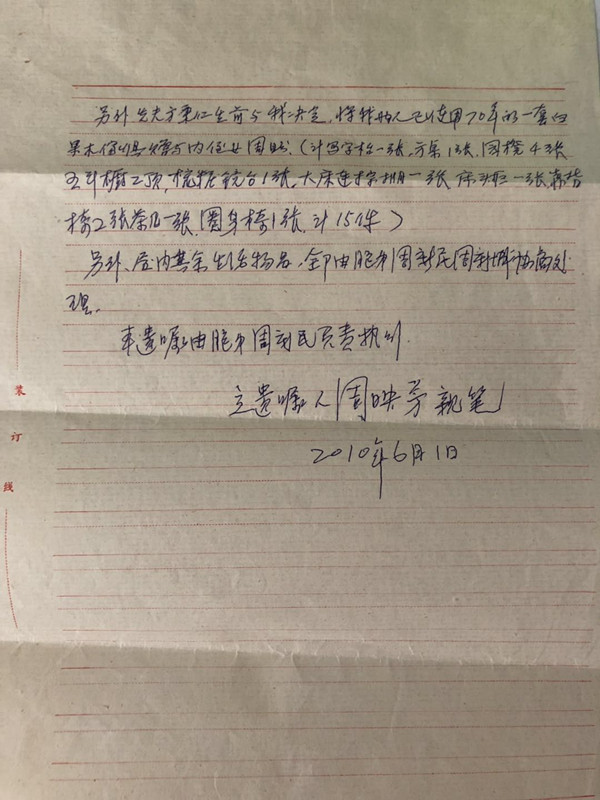 另外先夫方秉仁生前与我决定,将我俩人已使用70年的一套红
果木傢俱赠与内侄女周 (计写字枱一张,方桌1张,圆櫈4张
五斗橱2顶,梳粧镜台1张,大床连 一张 床 一张 靠背
椅2张茶几一张,圈身椅1张,计15件)
另外,屋内其余生活物品,全部由胞弟周新民周新 协商处
理。
本遗嘱由胞弟周新民负责执行.
立遗嘱人 周映芳 亲笔
2010年6月1日
装
订
线